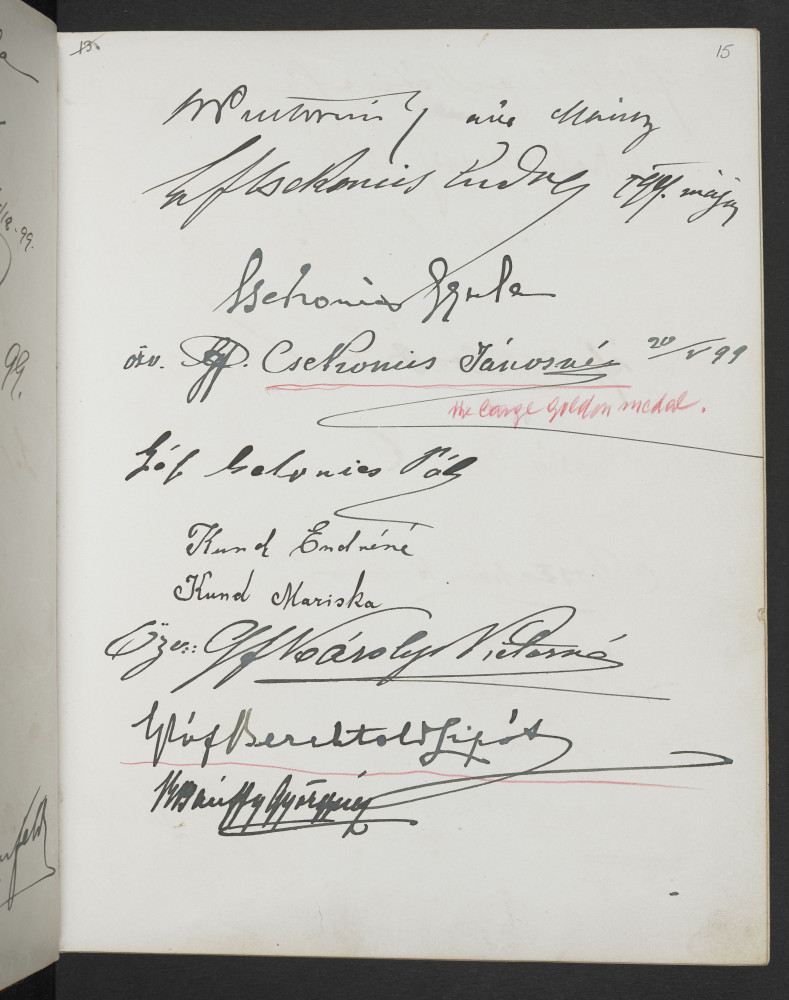 15
aus Mainz
Gf Csekonics Endre 1899. május
Csekonics Gyula
özv. Gf. Csekonics Jánosné 20/V 99
the large golden medal.
Gróf Csekonics Pál
Kund Endréné
Kund Mariska
Özv.: Gf Károlyi Victorné
Gróf Berchtold Lipót
Bánffy Györgyné
99.